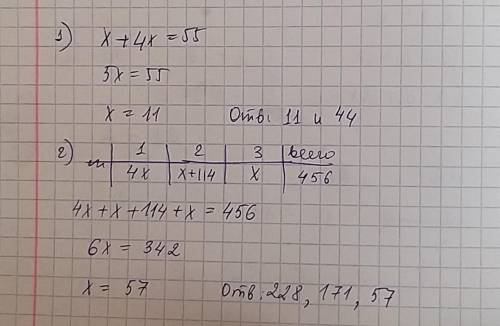 1) x + 4x = 55
5x = 55
x = 11 Отв: 11 и 44
2) 1 2 3 всего
4x x+114 x 456
4x + x + 114 + x = 456
6x = 342
x = 57 Отв: 228, 171, 57